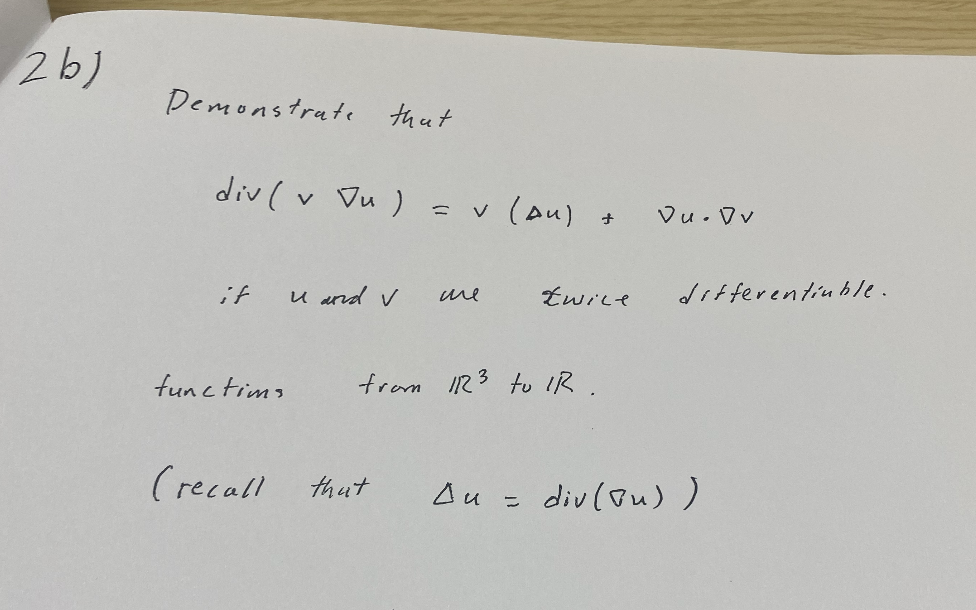 2b)
Demonstrate that
div( v ∇u ) = v (Δu) + ∇u · ∇v
if u and v are twice differentiable.
functions from ℝ³ to ℝ .
(recall that Δu = div(∇u) )